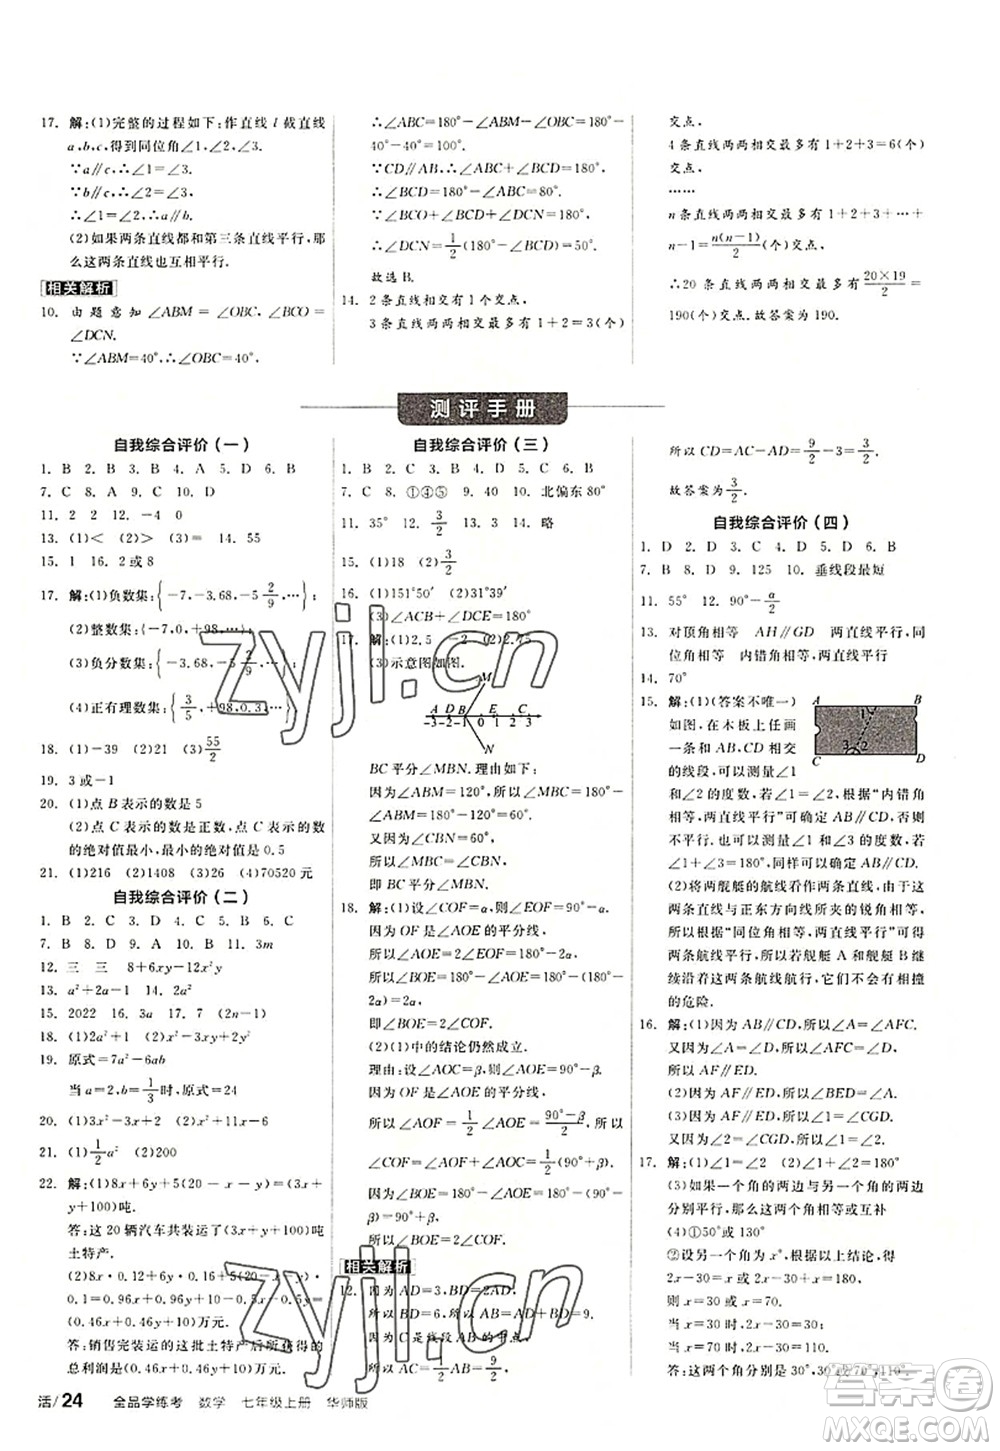 17. 解:(1)完整的过程如下:作直线 l 截直线
a,b,c,得到同位角∠1,∠2,∠3.
∵a∥c,∴∠1=∠3.
∵b∥c,∴∠2=∠3.
∴∠1=∠2,∴a∥b.
(2)如果两条直线都和第三条直线平行,那
么这两条直线也互相平行.
相关解析
10. 由题意知∠ABM=∠OBC,∠BCO=
∠DCN.
∵∠ABM=40°,∴∠OBC=40°,
∴∠ABC=180°-∠ABM-∠OBC=180°
-40°-40°=100°.
∵CD∥AB,∴∠ABC+∠BCD=180°,
∴∠BCD=180°-∠ABC=80°.
∵∠BCO+∠BCD+∠DCN=180°,∠BCO=∠DCN,
∴∠DCN=1/2(180°-∠BCD)=50°.
故选 B.
14. 2 条直线相交有 1 个交点,
3 条直线两两相交最多有 1+2=3(个)
交点.
4 条直线两两相交最多有 1+2+3=6(个)
交点.
……
n 条直线两两相交最多有 1+2+3+…+
n-1=n(n-1)/2(个)交点.
∴20 条直线相交最多有 20×19/2=
190(个)交点.故答案为 190.
测评手册
自我综合评价(一)
1. B 2. B 3. B 4. A 5. D 6. B
7. C 8. A 9. D 10. B
11. 2 2 12. -4 0
13. (1)< (2)> (3)= 14. 9
15. 1 16. 2或8
17. 解:(1)负数集:{-7,-3.68,-5,-2/9,…};
(2)整数集:{-7,0,+98,…};
(3)负分数集:{-3.68,-5,-2/9,…};
(4)正有理数集:{3/5,+98,0.3,…}
18. (1)-39 (2)5 (3)55/2
19. 3或-1
20. (1)点 B 表示的数是 5
(2)点 C 表示的数是正数,点 C 表示的数
的绝对值最小,最小的绝对值是 0.5
21. (1)216 (2)1408 (3)26 (4)70520 元
自我综合评价(二)
1. B 2. D 3. D 4. C 5. B 6. C
7. B 8. D 9. A 10. B 11. 3m
12. 三 三 8+6xy-x²y
13. a²+2a-11 14. 2a²
15. 2022 16. 3a 17. 7 (2n-1)
18. (1)2a²+1 (2)x²-3xy+2y²
19. 原式=7a²-6ab
当 a=2,b=1/3时,原式=24
20. (1)3x²+2x+6 (2)-11x-6
21. (1)1/2a² (2)200
22. 解:(1)8x+6y+5(20-x-y)=(3x+
y+100)吨.
答:这 20 辆汽车共装运了(3x+y+100)吨
土特产.
(2)8x·0.12+6y·0.16+5(20-x-y)·
0.1=0.96x+0.96y+10-0.5x-0.5y=
(0.46x+0.46y+10)万元.
答:销售完装运的这批土特产后所获得的
总利润是(0.46x+0.46y+10)万元.
自我综合评价(三)
1. B 2. A 3. B 4. D 5. C 6. B
7. C 8. ①④⑤ 9. 40 10. 北偏东80°
11. 35° 12. 3/2 13. 3 14. 略
15. (1)18 (2)3/2
16. (1)151°50′ (2)31°39′
(3)∠ACB+∠DCE=180°
17. 解:(1)2.5 -2 (2)2.75
(3)示意图如图.
M
A D B E C
-3 -2 -1 0 1 2 3
N
BC 平分∠MBN.理由如下:
因为∠ABM=120°,所以∠MBC=60°.
又因为∠ABN=120°,
所以∠CBN=60°.
所以∠MBC=∠CBN.
即 BC 平分∠MBN.
18. 解:(1)设∠COF=α,则∠EOF=90°-α.
因为 OF 是∠AOE 的平分线,
所以∠AOE=2∠EOF=180°-2α.
所以∠BOE=180°-∠AOE=180°-(180°-
2α)=2α.
即∠BOE=2∠COF.
(2)(1)中的结论仍然成立.
理由:设∠AOC=β,则∠AOE=90°-β.
因为 OF 是∠AOE 的平分线,
所以∠AOF=1/2∠AOE=(90°-β)/2.所以
∠COF=∠AOF+∠AOC=1/2(90°+β).
因为∠BOE=180°-∠AOE=90°+β,
所以∠BOE=2∠COF.
相关解析
12. 因为 AD=3,BD=2AD,
所以 BD=6,所以 AB=AD+BD=9.
因为 C 是线段 AB 的中点,
所以 AC=AB/2=9/2,
所以 CD=AC-AD=9/2-3=3/2.
故答案为3/2.
自我综合评价(四)
1. D 2. D 3. D 4. C 5. B 6. C
7. B 8. D 9. 125 10. 垂线段最短
11. 55° 12. 90°-α/2
13. 对顶角相等 AH∥GD 两直线平行,
同位角相等 内错角相等,两直线平行
14. 70°
15. 解:(1)(答案不唯一)
如图,在木板上任画
一条和 AB,CD 相交
的线段,可以测量∠1
和∠2,如果∠1=∠2,根据“内错角
相等,两直线平行”可以知道它们平行,
否则不平行.也可以测量∠1和∠3的度数,若
∠1+∠3=180°,同样可以得到结论.
(2)两艘舰艇的航线平行.理由:由于这
两条航线与正东方向线所夹的锐角相等,
所以根据“同位角相等,两直线平行”可知这
两条航线平行,所以若舰艇 A 和舰艇 B 继
续沿着这两条航线航行,它们不会有相撞
的危险.
A B
C D
1 3 2
16. 解:(1)因为 AB∥CD,所以∠A=∠AFC.
又因为∠A=∠D,所以∠D=∠AFC,
所以 AF∥ED.
(2)因为 AF∥ED,所以∠BED=∠A.
(3)因为 AF∥ED,所以∠2=∠CGD.
又因为∠1=∠CGD,
所以∠1=∠2.
17. 解:(1)∠1=∠2 (2)∠1+∠2=180°
(3)如果一个角的两边与另一个角的两边
分别平行,那么这两个角相等或互补
(4)①50°或130°
②设另一个角为x°,则这个角为(2x-30)°.
根据以上结论,得
2x-30=x或2x-30+x=180,
所以 x=30 或 x=70.
当 x=30 时,2x-30=30;
当 x=70 时,2x-30=110.
答:这两个角分别是30°,30°或70°,110°.
活/24 全品学练考 数学 七年级上册 华师版
zyjl.cn
zyjl.cn
答案圈
MXQE.COM